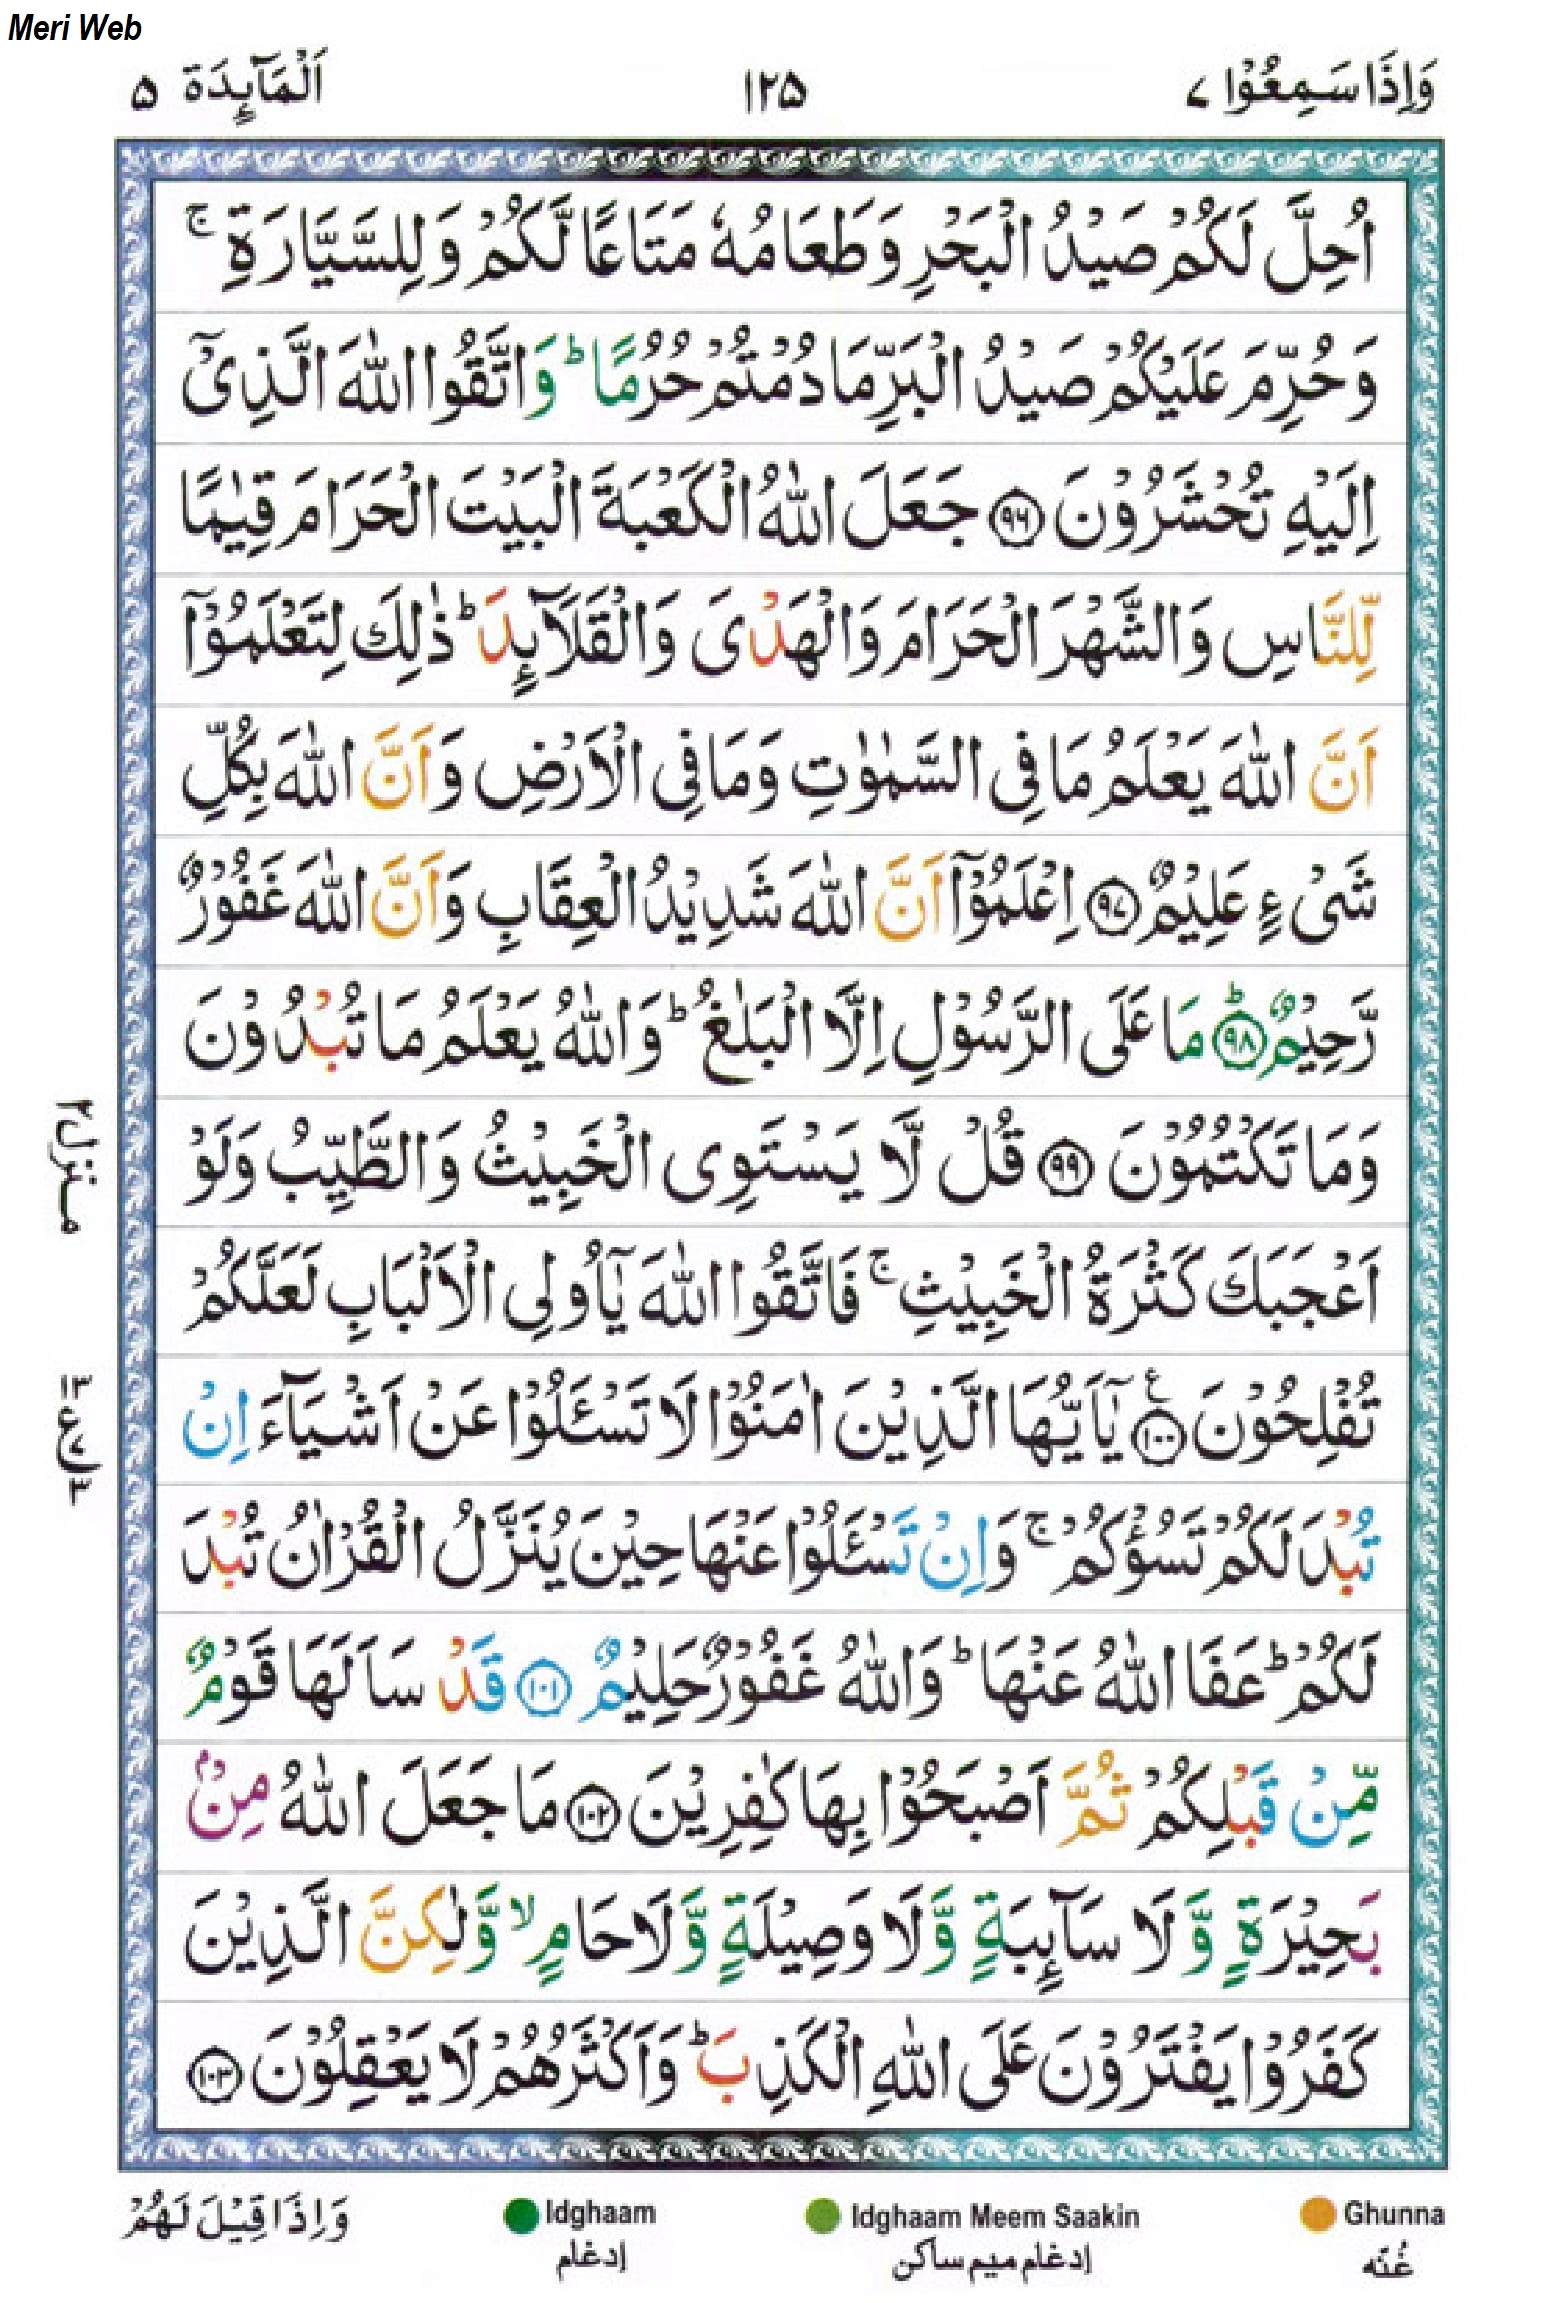 Meri Web
وَاِذَا سَمِعُوْا ۷
۱۲۵
اَلْمَآئِدَة ۵
اُحِلَّ لَكُمْ صَيْدُ الْبَحْرِ وَطَعَامُهٗ مَتَاعًا لَّكُمْ وَلِلسَّيَّارَةِ ۚ
وَحُرِّمَ عَلَيْكُمْ صَيْدُ الْبَرِّ مَا دُمْتُمْ حُرُمًا ؕ وَاتَّقُوا اللّٰهَ الَّذِیْۤ
اِلَيْهِ تُحْشَرُوْنَ ﴿۹۶﴾ جَعَلَ اللّٰهُ الْكَعْبَةَ الْبَيْتَ الْحَرَامَ قِيٰمًا
لِّلنَّاسِ وَالشَّهْرَ الْحَرَامَ وَالْهَدْیَ وَالْقَلَآئِدَ ؕ ذٰلِكَ لِتَعْلَمُوْۤا
اَنَّ اللّٰهَ يَعْلَمُ مَا فِی السَّمٰوٰتِ وَمَا فِی الْاَرْضِ وَاَنَّ اللّٰهَ بِكُلِّ
شَیْءٍ عَلِيْمٌ ﴿۹۷﴾ اِعْلَمُوْۤا اَنَّ اللّٰهَ شَدِيْدُ الْعِقَابِ وَاَنَّ اللّٰهَ غَفُوْرٌ
رَّحِيْمٌ ﴿۹۸﴾ؕ مَا عَلَی الرَّسُوْلِ اِلَّا الْبَلٰغُ ؕ وَاللّٰهُ يَعْلَمُ مَا تُبْدُوْنَ
وَمَا تَكْتُمُوْنَ ﴿۹۹﴾ قُلْ لَّا يَسْتَوِی الْخَبِيْثُ وَالطَّيِّبُ وَلَوْ
اَعْجَبَكَ كَثْرَةُ الْخَبِيْثِ ۚ فَاتَّقُوا اللّٰهَ يٰۤاُولِی الْاَلْبَابِ لَعَلَّكُمْ
تُفْلِحُوْنَ ﴿۱۰۰﴾ۧ يٰۤاَيُّهَا الَّذِيْنَ اٰمَنُوْا لَا تَسْـَٔلُوْا عَنْ اَشْيَآءَ اِنْ
تُبْدَ لَكُمْ تَسُؤْكُمْ ۚ وَاِنْ تَسْـَٔلُوْا عَنْهَا حِيْنَ يُنَزَّلُ الْقُرْاٰنُ تُبْدَ
لَكُمْ ؕ عَفَا اللّٰهُ عَنْهَا ؕ وَاللّٰهُ غَفُوْرٌ حَلِيْمٌ ﴿۱۰۱﴾ قَدْ سَاَلَهَا قَوْمٌ
مِّنْ قَبْلِكُمْ ثُمَّ اَصْبَحُوْا بِهَا كٰفِرِيْنَ ﴿۱۰۲﴾ مَا جَعَلَ اللّٰهُ مِنْۢ
بَحِيْرَةٍ وَّلَا سَآئِبَةٍ وَّلَا وَصِيْلَةٍ وَّلَا حَامٍ ۙ وَّلٰكِنَّ الَّذِيْنَ
كَفَرُوْا يَفْتَرُوْنَ عَلَی اللّٰهِ الْكَذِبَ ؕ وَاَكْثَرُهُمْ لَا يَعْقِلُوْنَ ﴿۱۰۳﴾
منزل ۲
۱۳
ع ۷
۳
وَاِذَا قِيْلَ لَهُمْ
Idghaam
إدغام
Idghaam Meem Saakin
إدغام ميم ساكن
Ghunna
غُنّه